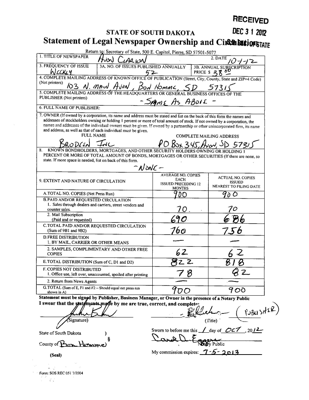 RECEIVED
DEC 31 2012
STATE OF SOUTH DAKOTA
Statement of Legal Newspaper Ownership and
Return to: Secretary of State, 500 E. Capitol, Pierre, SD 57501-5077
1. TITLE OF NEWSPAPER
Avon Clarion
2. DATE
10-1-12
3. FREQUENCY OF ISSUE
Weekly
3A. NO. OF ISSUES PUBLISHED ANNUALLY
52
3B. ANNUAL SUBSCRIPTION
PRICE $
4. COMPLETE MAILING ADDRESS OF KNOWN OFFICE OF PUBLICATION (Street, City, County, State and ZIP+4 Code)
(Not printers)
103 N. Main Avon, Bon Homme, SD 57315
5. COMPLETE MAILING ADDRESS OF THE HEADQUARTERS OR GENERAL BUSINESS OFFICES OF THE
PUBLISHER (Not printers)
- Same As Above -
6. FULL NAME OF PUBLISHER:
7. OWNER (If owned by a corporation, its name and address must be stated and list on the back of this form the names and
addresses of stockholders owning or holding 1 percent or more of total amount of stock. If not owned by a corporation, the
names and addresses of the individual owners must be given. If owned by a partnership or other unincorporated firm, its name
and address, as well as that of each individual must be given.
FULL NAME
COMPLETE MAILING ADDRESS
Brodeen Inc.
PO Box 345 Avon, SD 57315
8. KNOWN BONDHOLDERS, MORTGAGEES, AND OTHER SECURITY HOLDERS OWNING OR HOLDING 1
PERCENT OR MORE OF TOTAL AMOUNT OF BONDS, MORTGAGES OR OTHER SECURITIES (If there are none, so
state. If more space is needed, list on back of this form.
- None -
9. EXTENT AND NATURE OF CIRCULATION
AVERAGE NO. COPIES
EACH
ISSUED PRECEDING 12
MONTHS
ACTUAL NO. COPIES
ISSUED
NEAREST TO FILING DATE
A. TOTAL NO. COPIES (Net Press Run)
900
900
B. PAID AND/OR REQUESTED CIRCULATION
1. Sales through dealers and carriers, street vendors and
counter sales
70
70
2. Mail Subscription
(Paid and or requested)
690
686
C. TOTAL PAID AND/OR REQUESTED CIRCULATION
(Sum of 9B1 and 9B2)
760
756
D. FREE DISTRIBUTION
1. BY MAIL, CARRIER OR OTHER MEANS
2. SAMPLES, COMPLIMENTARY AND OTHER FREE
COPIES
62
62
E. TOTAL DISTRIBUTION (Sum of C, D1 and D2)
822
818
F. COPIES NOT DISTRIBUTED
1. Office use, left over, unaccounted, spoiled after printing
78
82
2. Return from News Agents
G. TOTAL (Sum of E, F1 and F2 - Should equal net press run
shown in A)
900
900
Statement must be signed by Publisher, Business Manager, or Owner in the presence of a Notary Public
I swear that the statements made by me are true, correct, and complete:
(Publisher)
(Signature)
(Title)
State of South Dakota )
Sworn to before me this 1 day of OCT, 2012
§
County of Bon Homme )
Notary Public
(Seal)
My commission expires: 7-5-2013